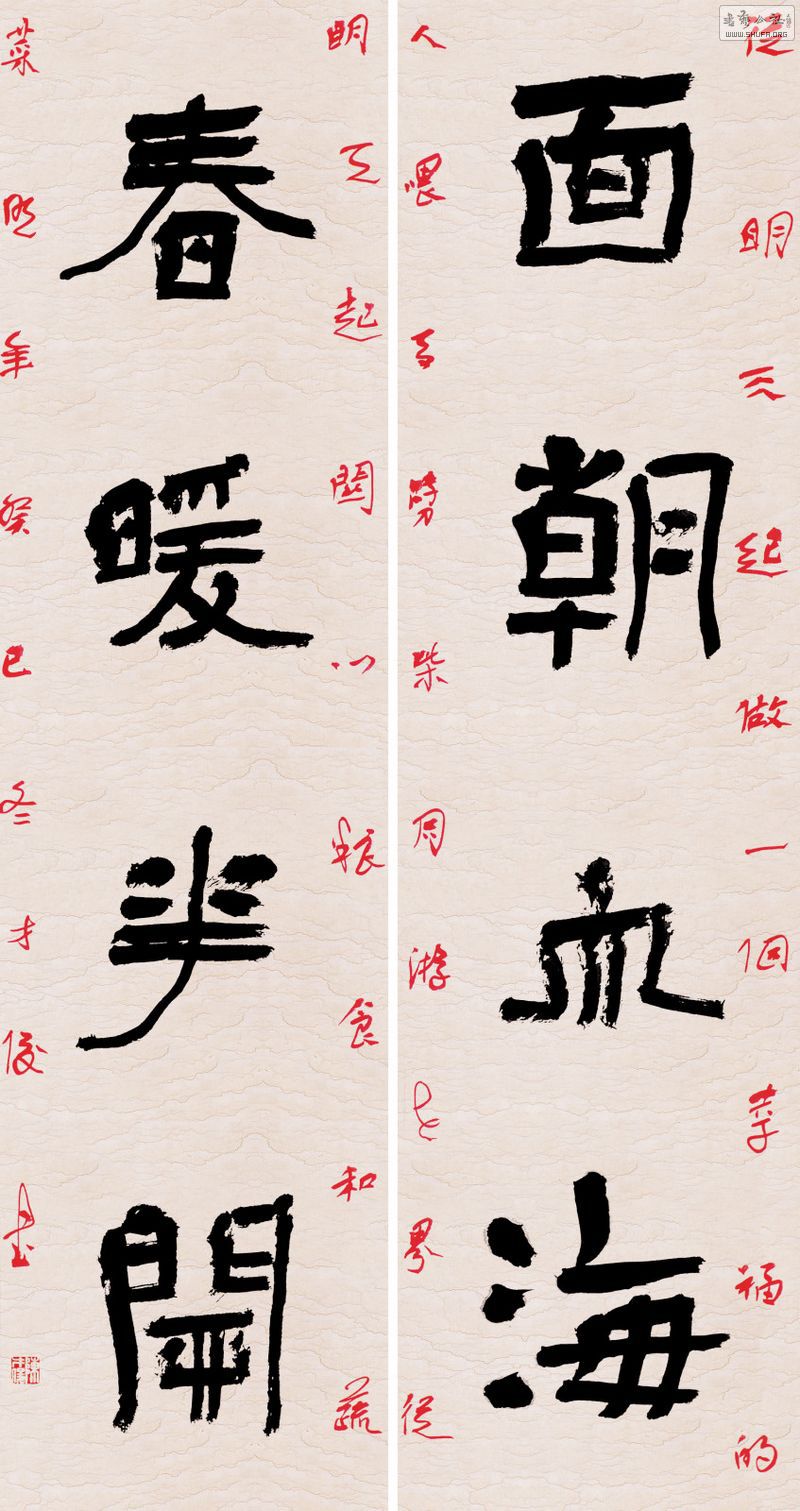 書藝公社
WWW.SHUFA.ORG
從明天起做一個幸福的
面朝大海
人喂馬劈柴周游世界從
明天起關心粮食和蔬
春暖華開
菜 年癸巳冬才俊書